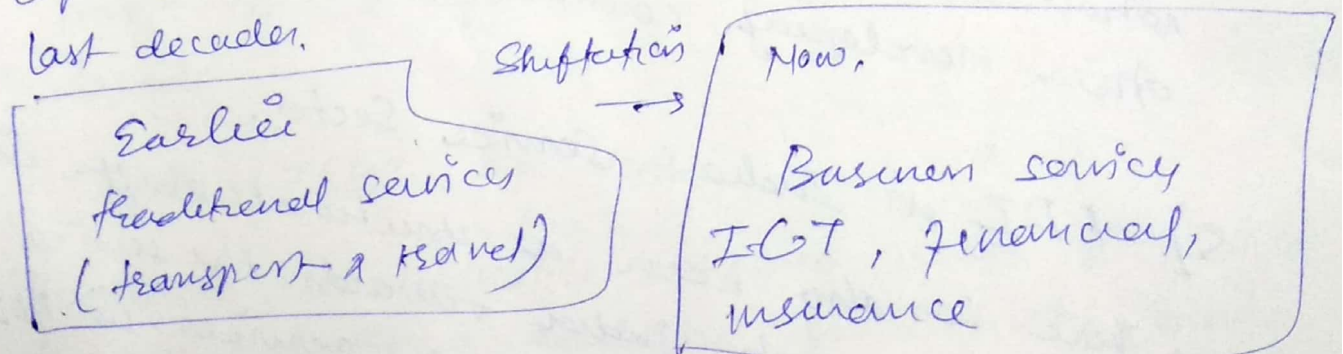 last decades.
Shiftation
→
Earlier
traditional services
(transport & travel)
Now,
Business services
ICT, financial,
insurance